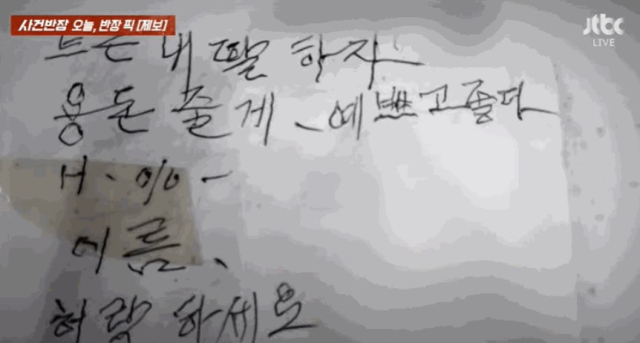 사건반장 오늘, 반장 픽 [제보]
jtbc
LIVE
내 딸 하자
용돈 줄게、예쁘고 좋다
H. 010-
이름、
허락 하세요